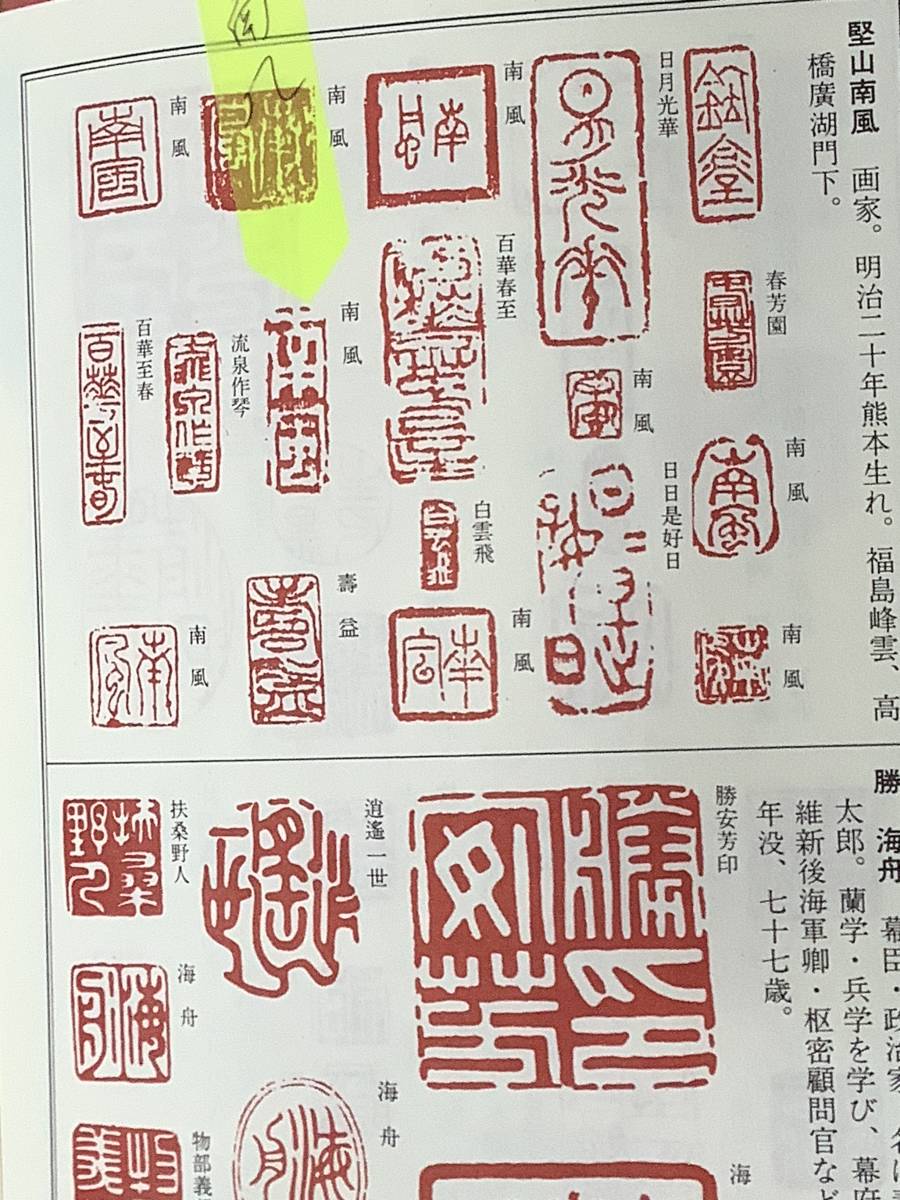 堅山南風　画家。明治二十年熊本生れ。福島峰雲、高
橋廣湖門下。
春芳園
南風
南風
日月光華
南風
日日是好日
南風
百華春至
白雲飛
南風
南風
南風
壽益
南風
流泉作琴
百華至春
南風
勝　海舟　幕臣・政治家。名は
太郎。蘭学・兵学を学び、幕府
維新後海軍卿・枢密顧問官など
年没、七十七歳。
勝安芳印
海
逍遙一世
海舟
扶桑野人
海舟
物部義